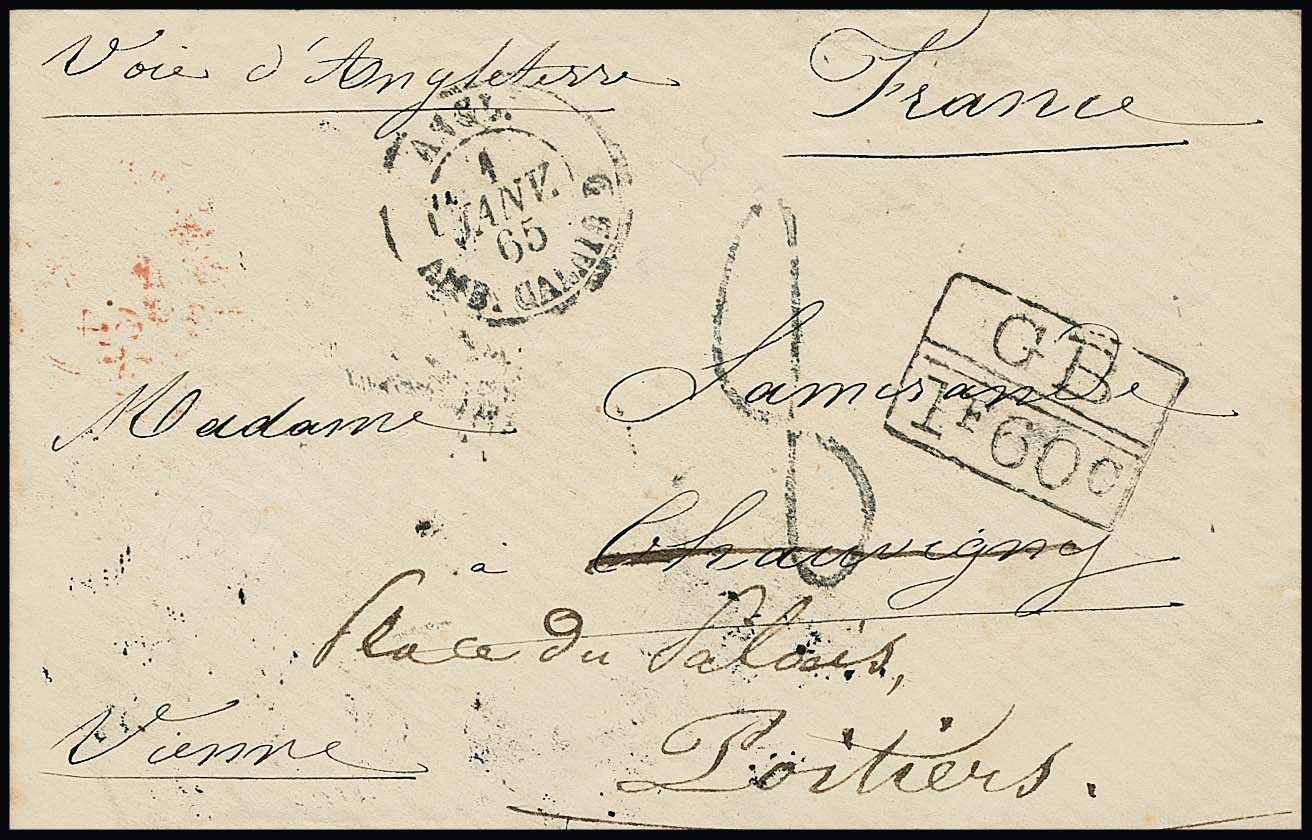 Voie d'Angleterre France
ANGL.
1
JANV.
65
AMB. CALAIS G
8
GB
1F60c
Madame
à Chauvigny
Place du Palais,
Vienne
Poitiers.